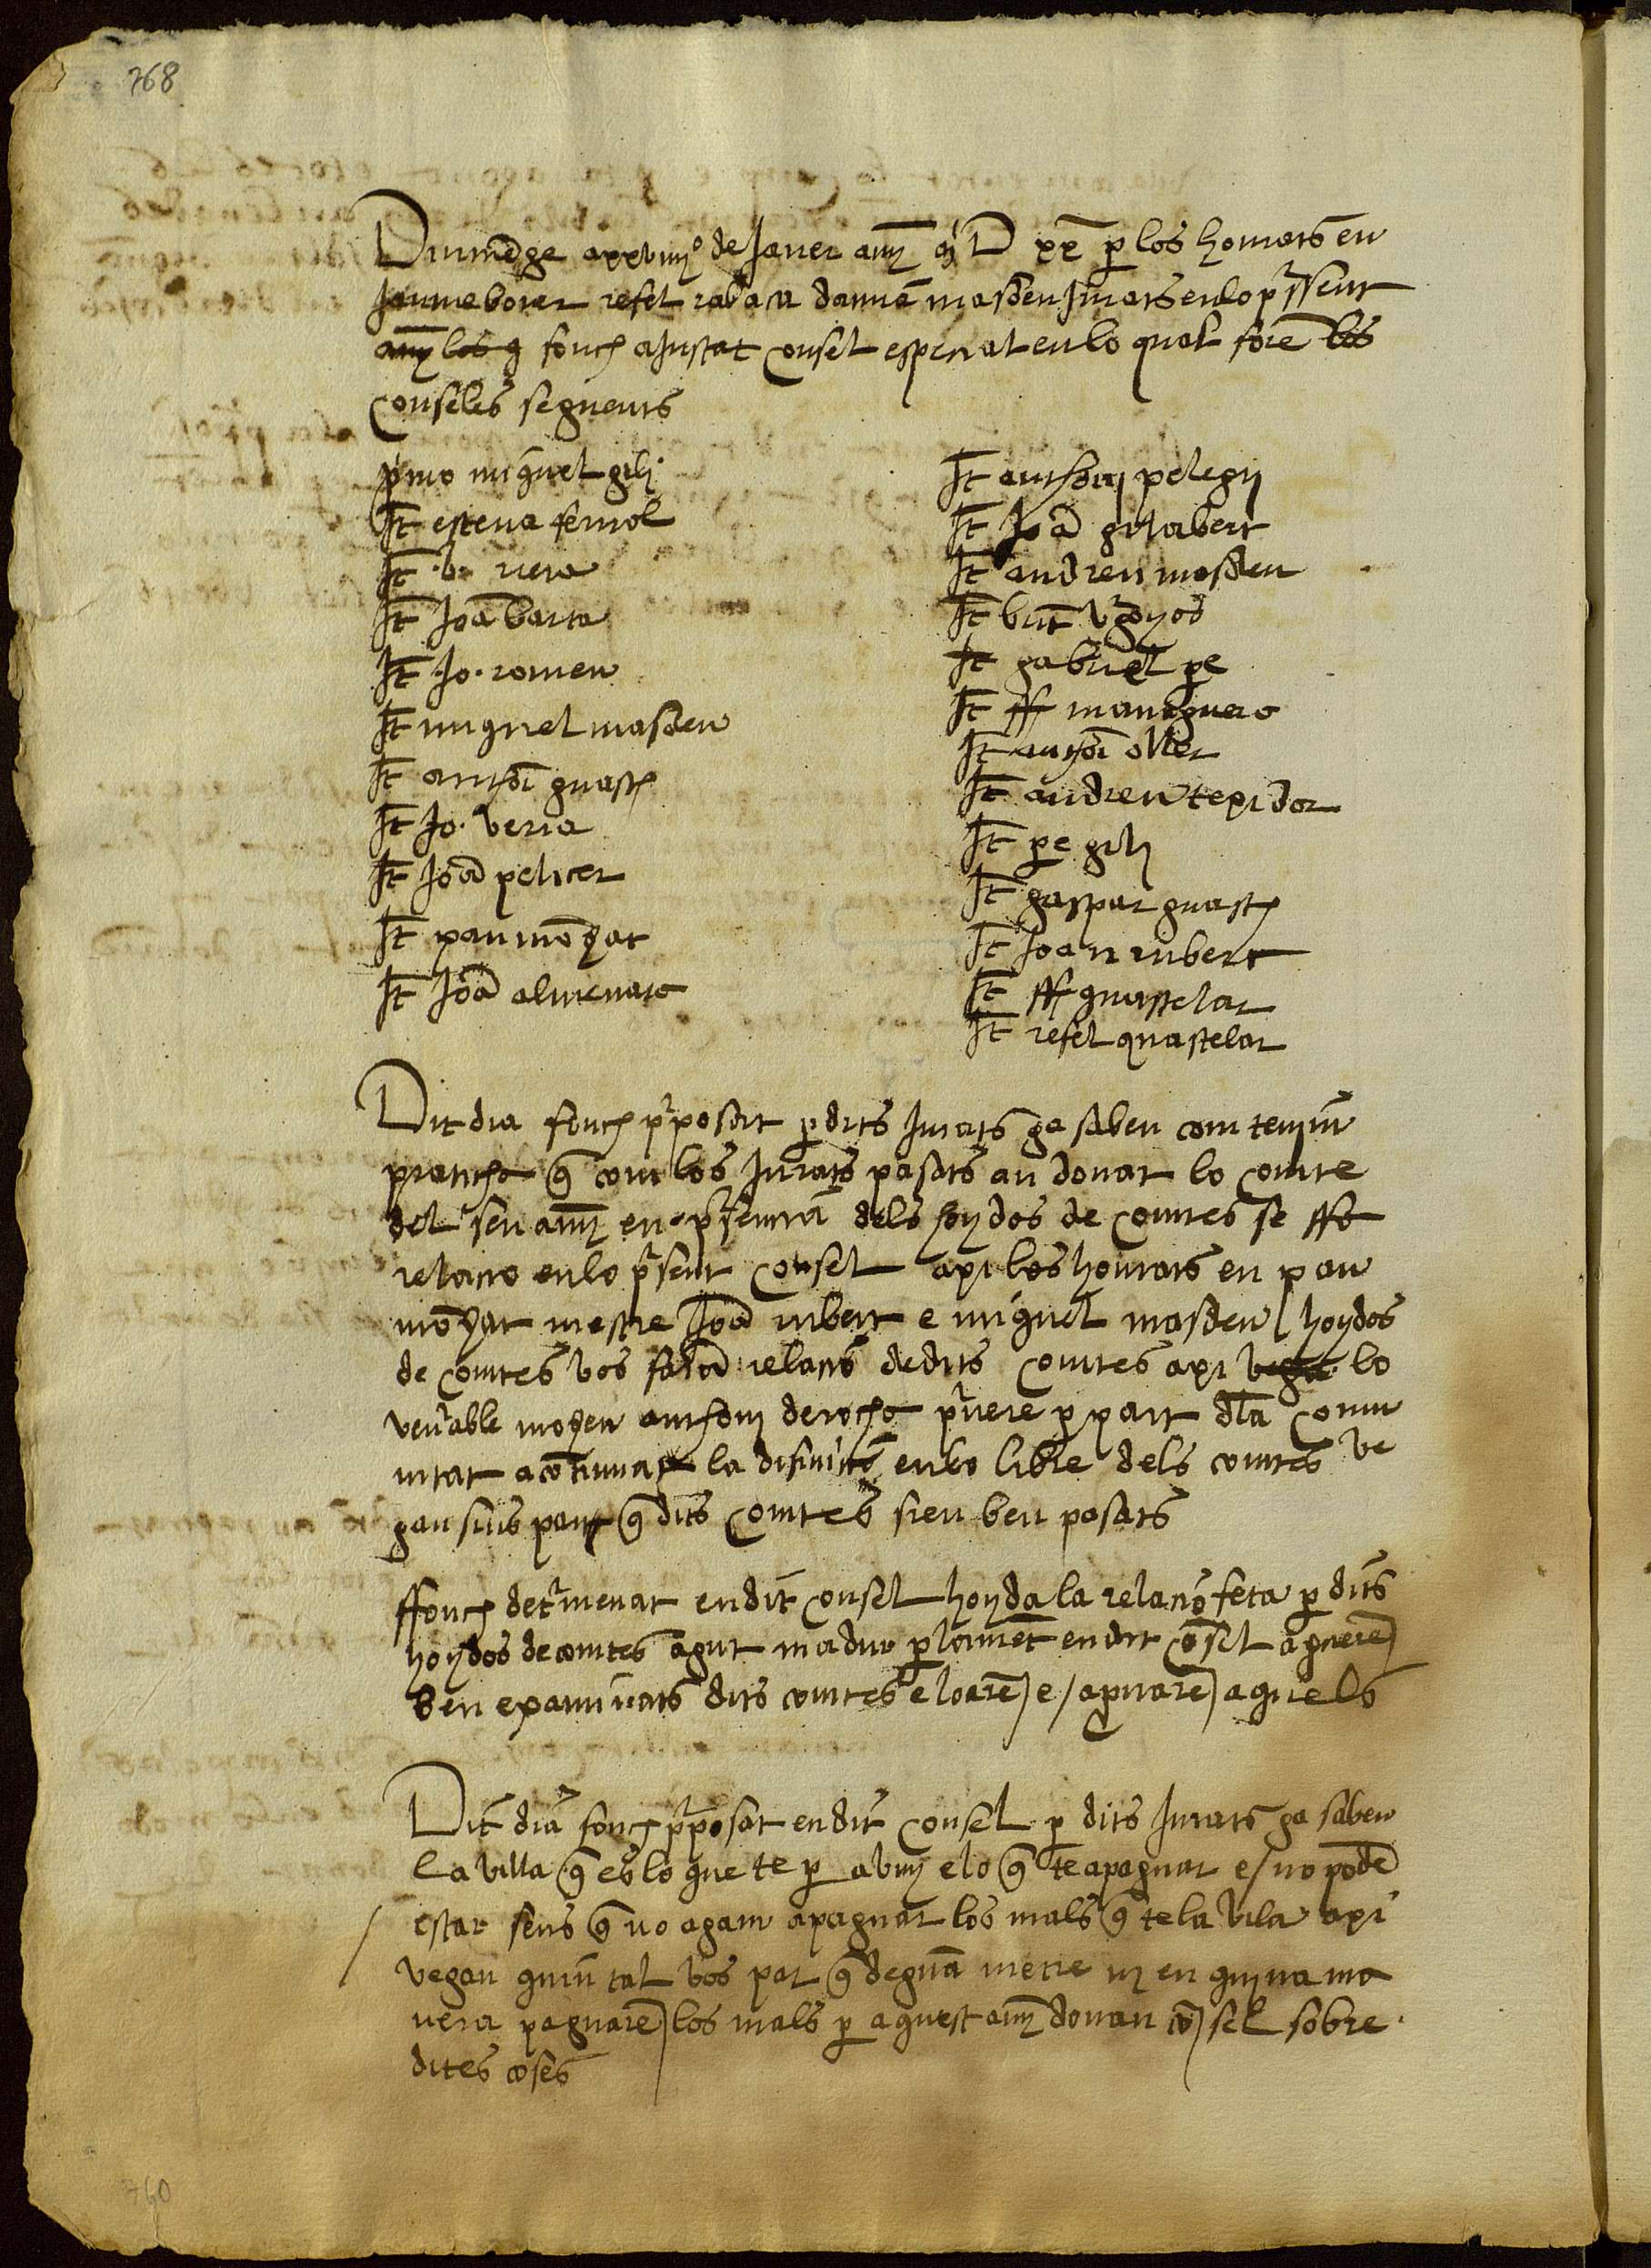 768
Diumēge a xxviiij° de Janer anÿ M D xx p los honrats en
Jaume borer refel rabaça damiā masdeu Jurats en lo pssent
anÿ los q fonch aJustat consel espesial en lo qual forē los
conseles seguents
pimo miguel gili
It esteva ferriol
It b riera
It Joā barta
It Jo. romeu
It miguel masdeu
It anthoī guasch
It Jo. veria
It Joā peliser
It pau mōyar
It Joā almenara
It anthonj pelegrj
It Joā gilabert
It andreu masdeu
It
It gabriel pe
It ff maneguera
It anthoī oller
It andreu texidor
It pe gili
It gaspar guasch
It Joan rubert
It ff guastelar
It refel guastelar
Dit dia fonch pposat p dits Jurats ja saben com tenim
praticha q com los Jurats pasats an donat lo comte
del seu anÿ en psentia dels hoydos de comtes se ffa
relacio en lo psent consel axi los honrats en pau
mōyar mestre Joā rubert e miguel masdeu hoydos
de comtes vos farā relacio de dits comtes axi vega lo
venable moșen anthonj de rocha pvere p part dla comu
nitat a cōtinuar la difinitio en lo libre dels comtes ve
gau sius par q dits comtes sien ben posats
ffonch detmenat en dit consel hoyda la relacio feta p dits
hoydos de comtes agut madur plamēt en dit cōsel aguerē
ben examinats dits comtes e loarē e / aprvarē aquels
Dit dia fonch pposat en dit consel p dits Jurats ja saben
la villa q es lo que te p aviÿ e lo q te a paguar e / no podē
estar sens q no agam a paguar los mals q te la vila axi
vegau quin tal vos par q deguā metre nj en quina ma
nera paguarē los mals p aquest anÿ donau cōsel sobre
dites coses
760